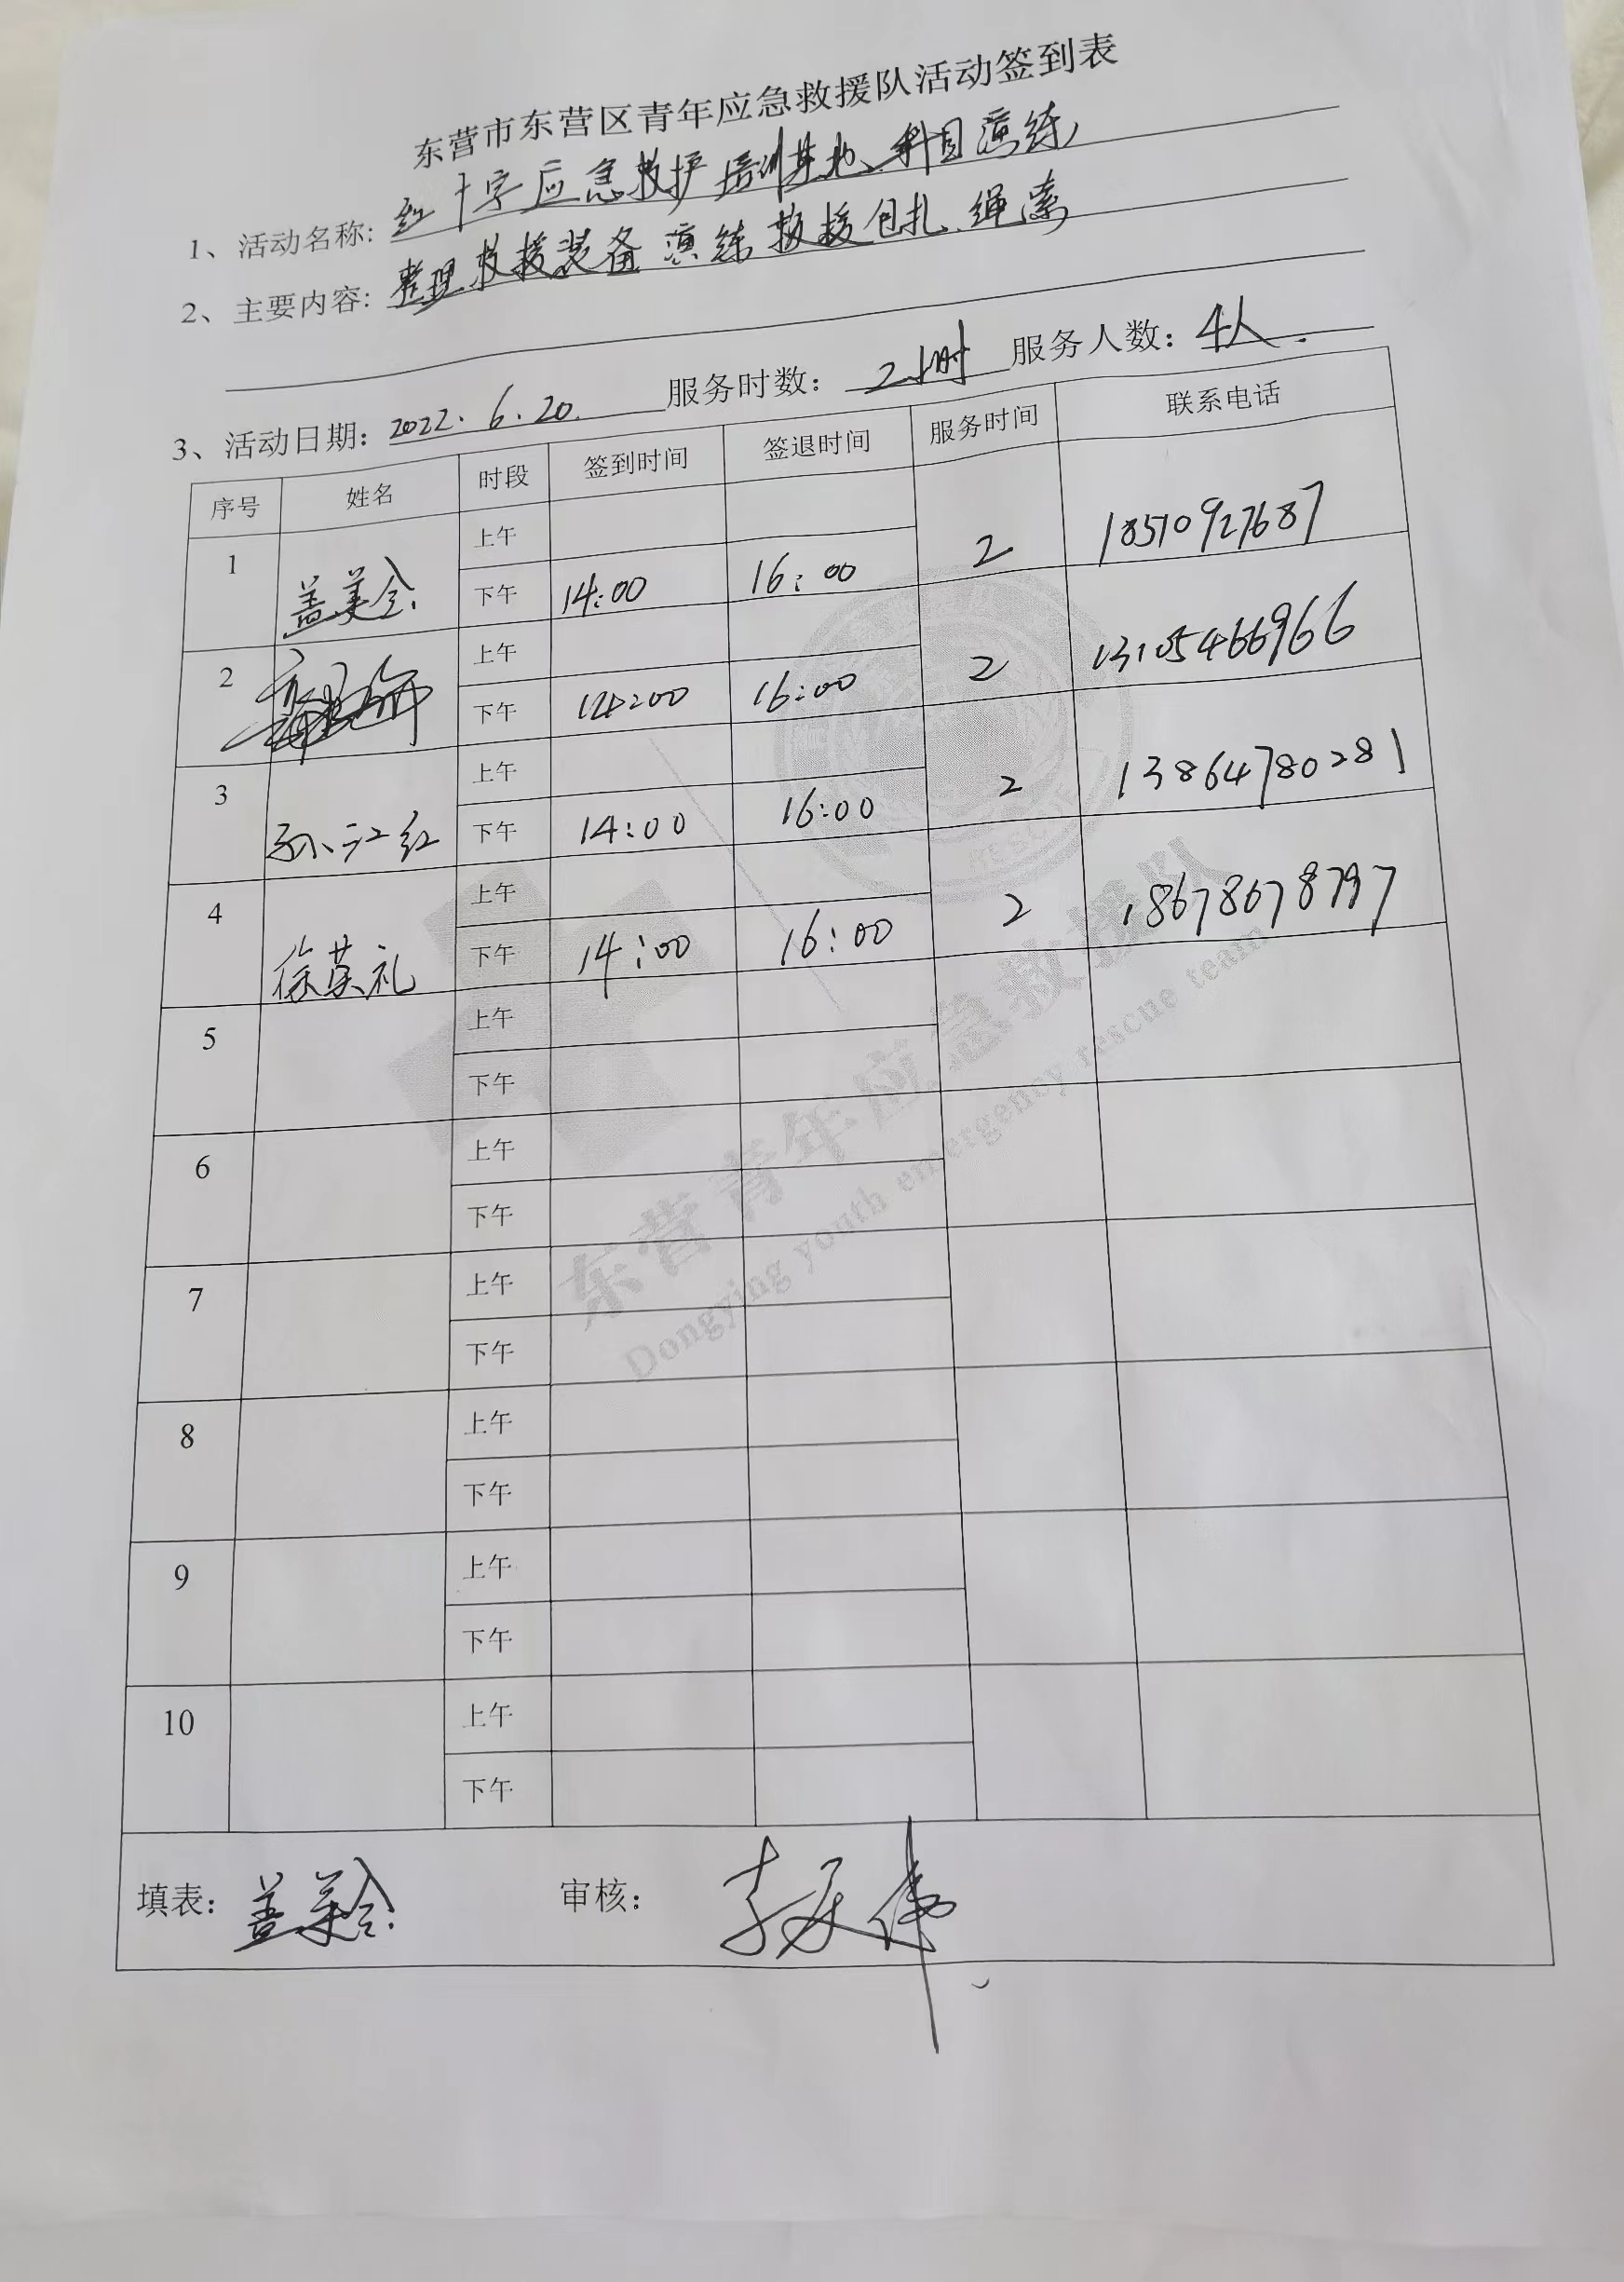 东营市东营区青年应急救援队活动签到表
1、活动名称: 红十字应急救护培训基地、科目演练
2、主要内容: 整理救援装备 演练 救援包扎、绳索
3、活动日期: 2022.6.20. 服务时数: 2小时 服务人数: 4人.
序号 姓名 时段 签到时间 签退时间 服务时间 联系电话
1 盖美会 上午
下午 14:00 16:00 2 18510927687
2 上午
下午 14:00 16:00 2 13105466966
3 孙江红 上午
下午 14:00 16:00 2 13864780281
4 徐英礼 上午
下午 14:00 16:00 2
5 上午
下午
6 上午
下午
7 上午
下午
8 上午
下午
9 上午
下午
10 上午
下午
填表: 盖美会 审核:
东营青年应急救援队
Dongying youth emergency rescue team